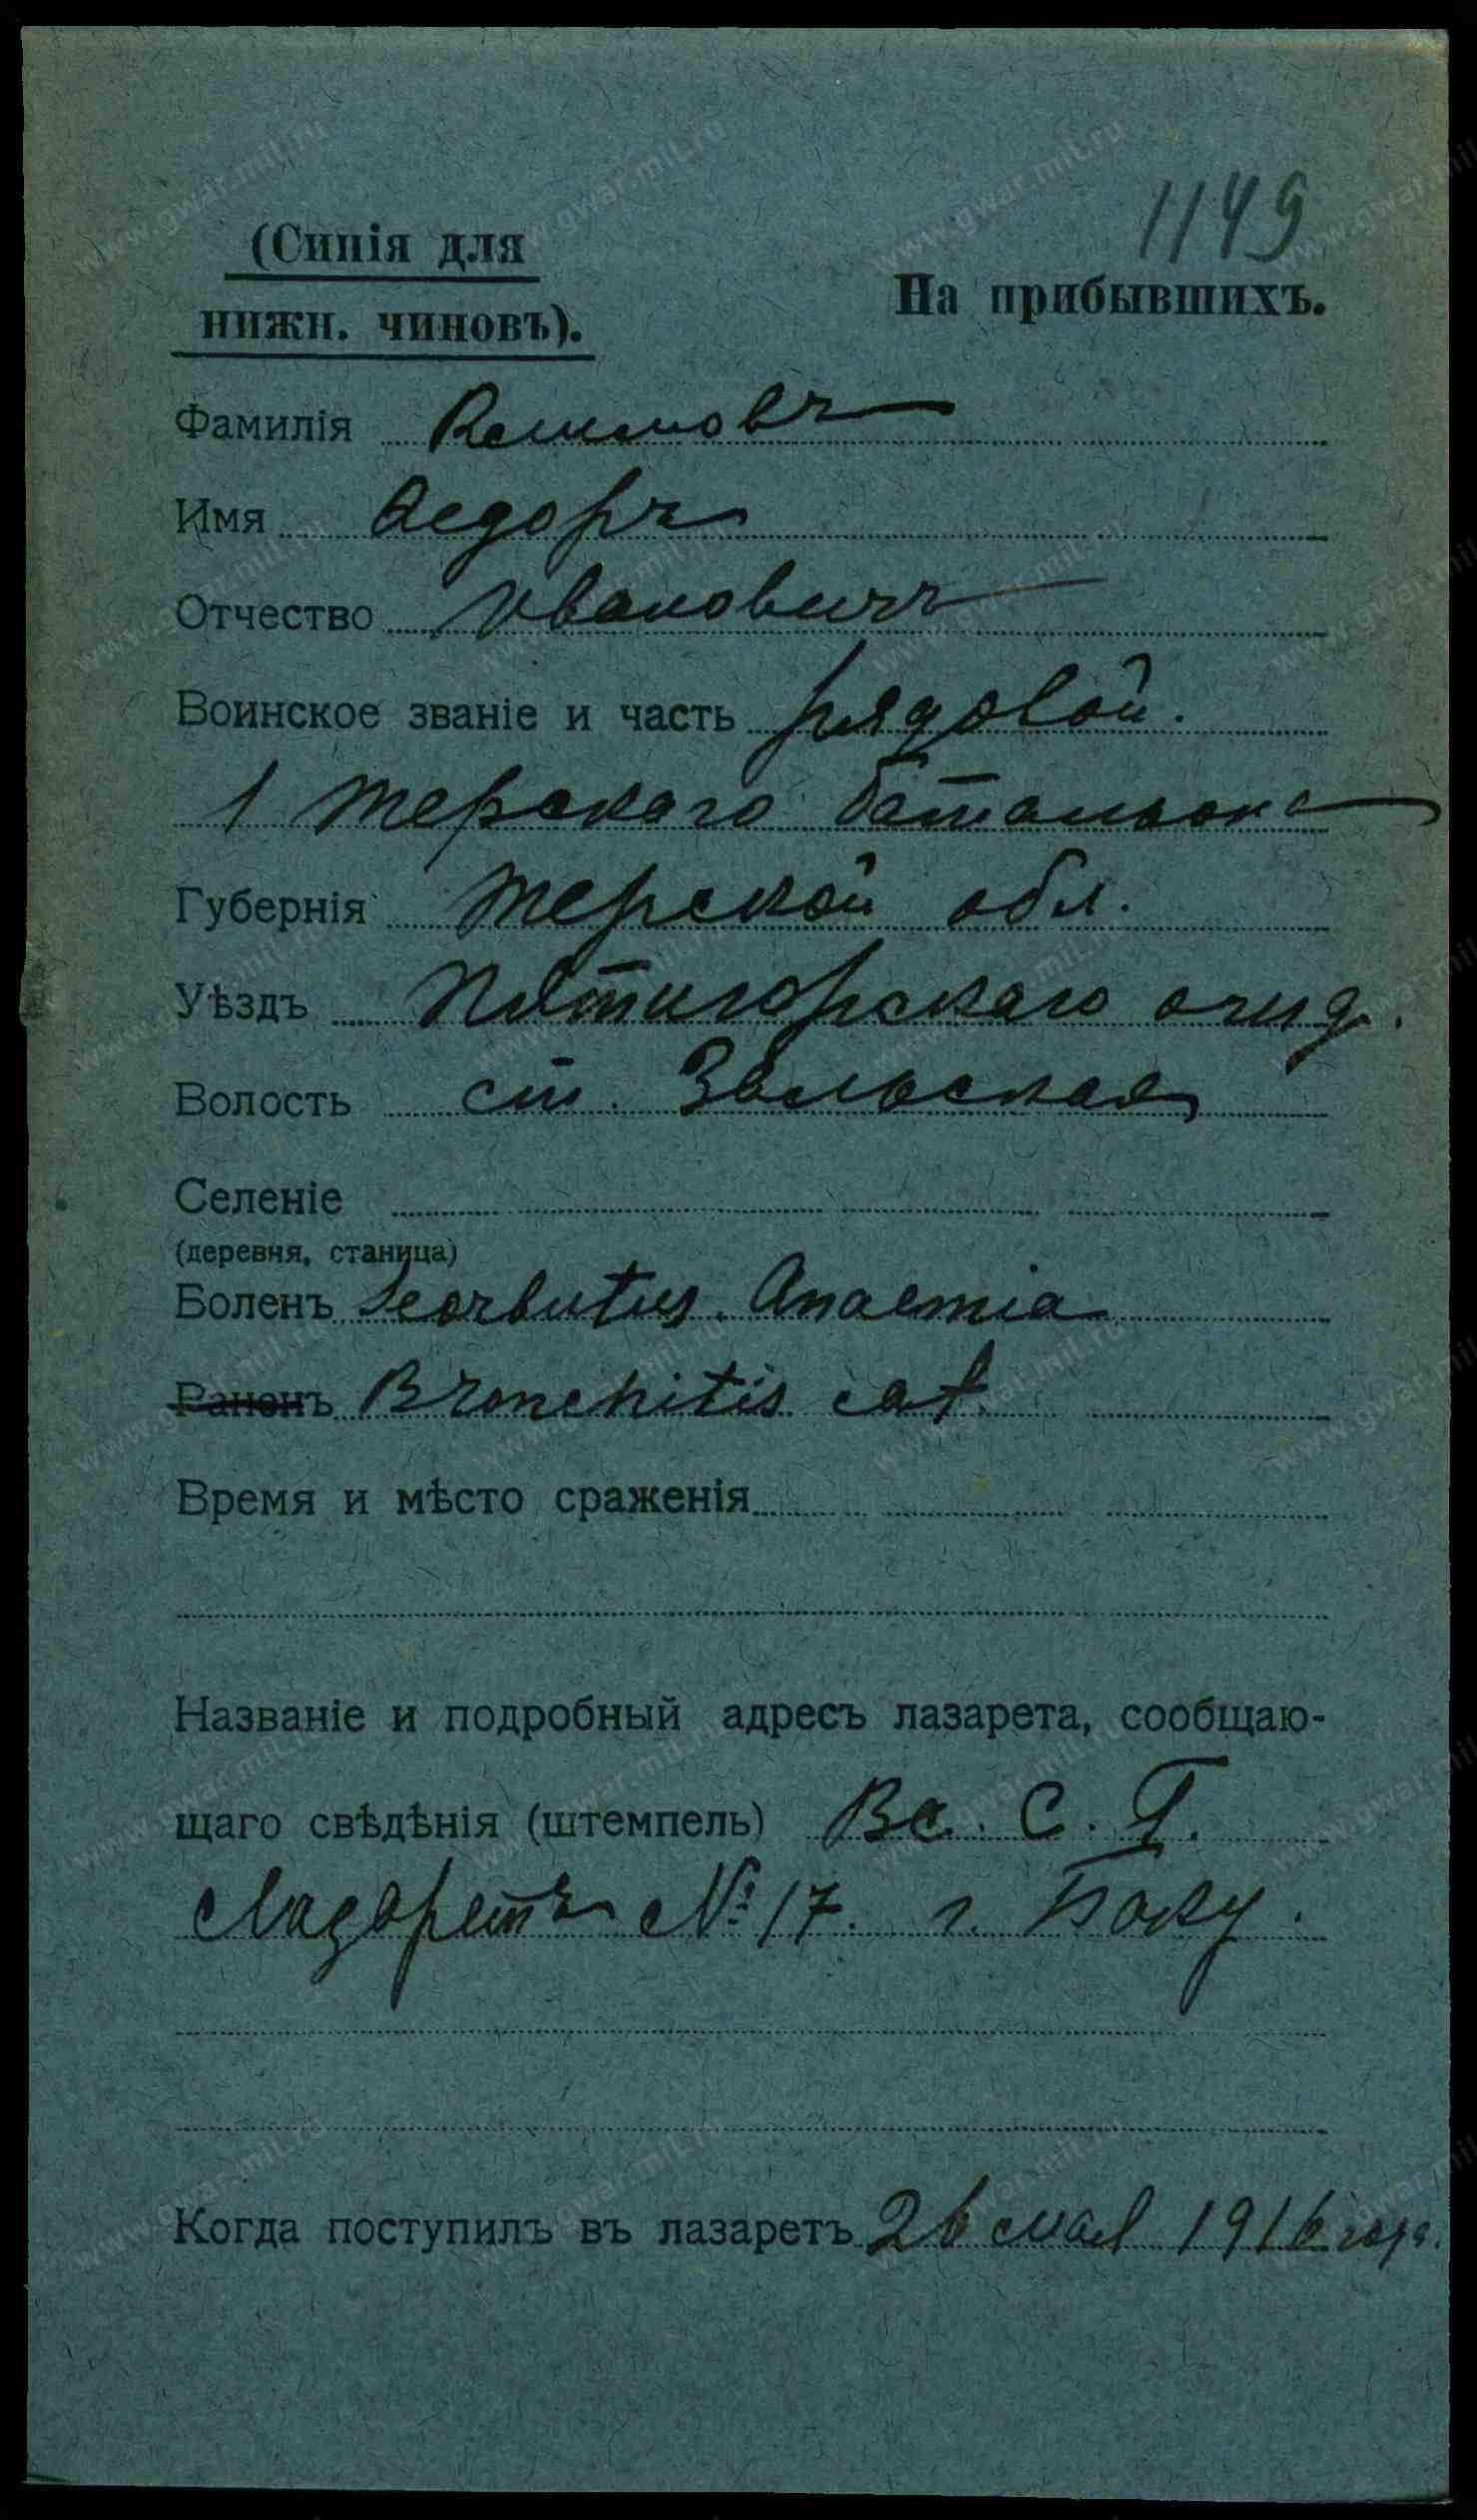 1149
(Синія для
нижн. чиновъ).
На прибывшихъ.
Фамилія
Имя Ѳедоръ
Отчество Ивановичъ
Воинское званіе и часть рядовой.
1 Терскаго баталіона
Губернія Терской обл.
Уѣздъ Пятигорскаго отд.
Волость ст. Зольская
Селеніе
(деревня, станица)
Боленъ Scorbutus. Anaemia
Раненъ Bronchitis cat.
Время и мѣсто сраженія
Названіе и подробный адресъ лазарета, сообщаю-
щаго свѣдѣнія (штемпель) Вс. С. Г.
Лазаретъ № 17. г. Баку.
Когда поступилъ въ лазаретъ 26 мая 1916 года.